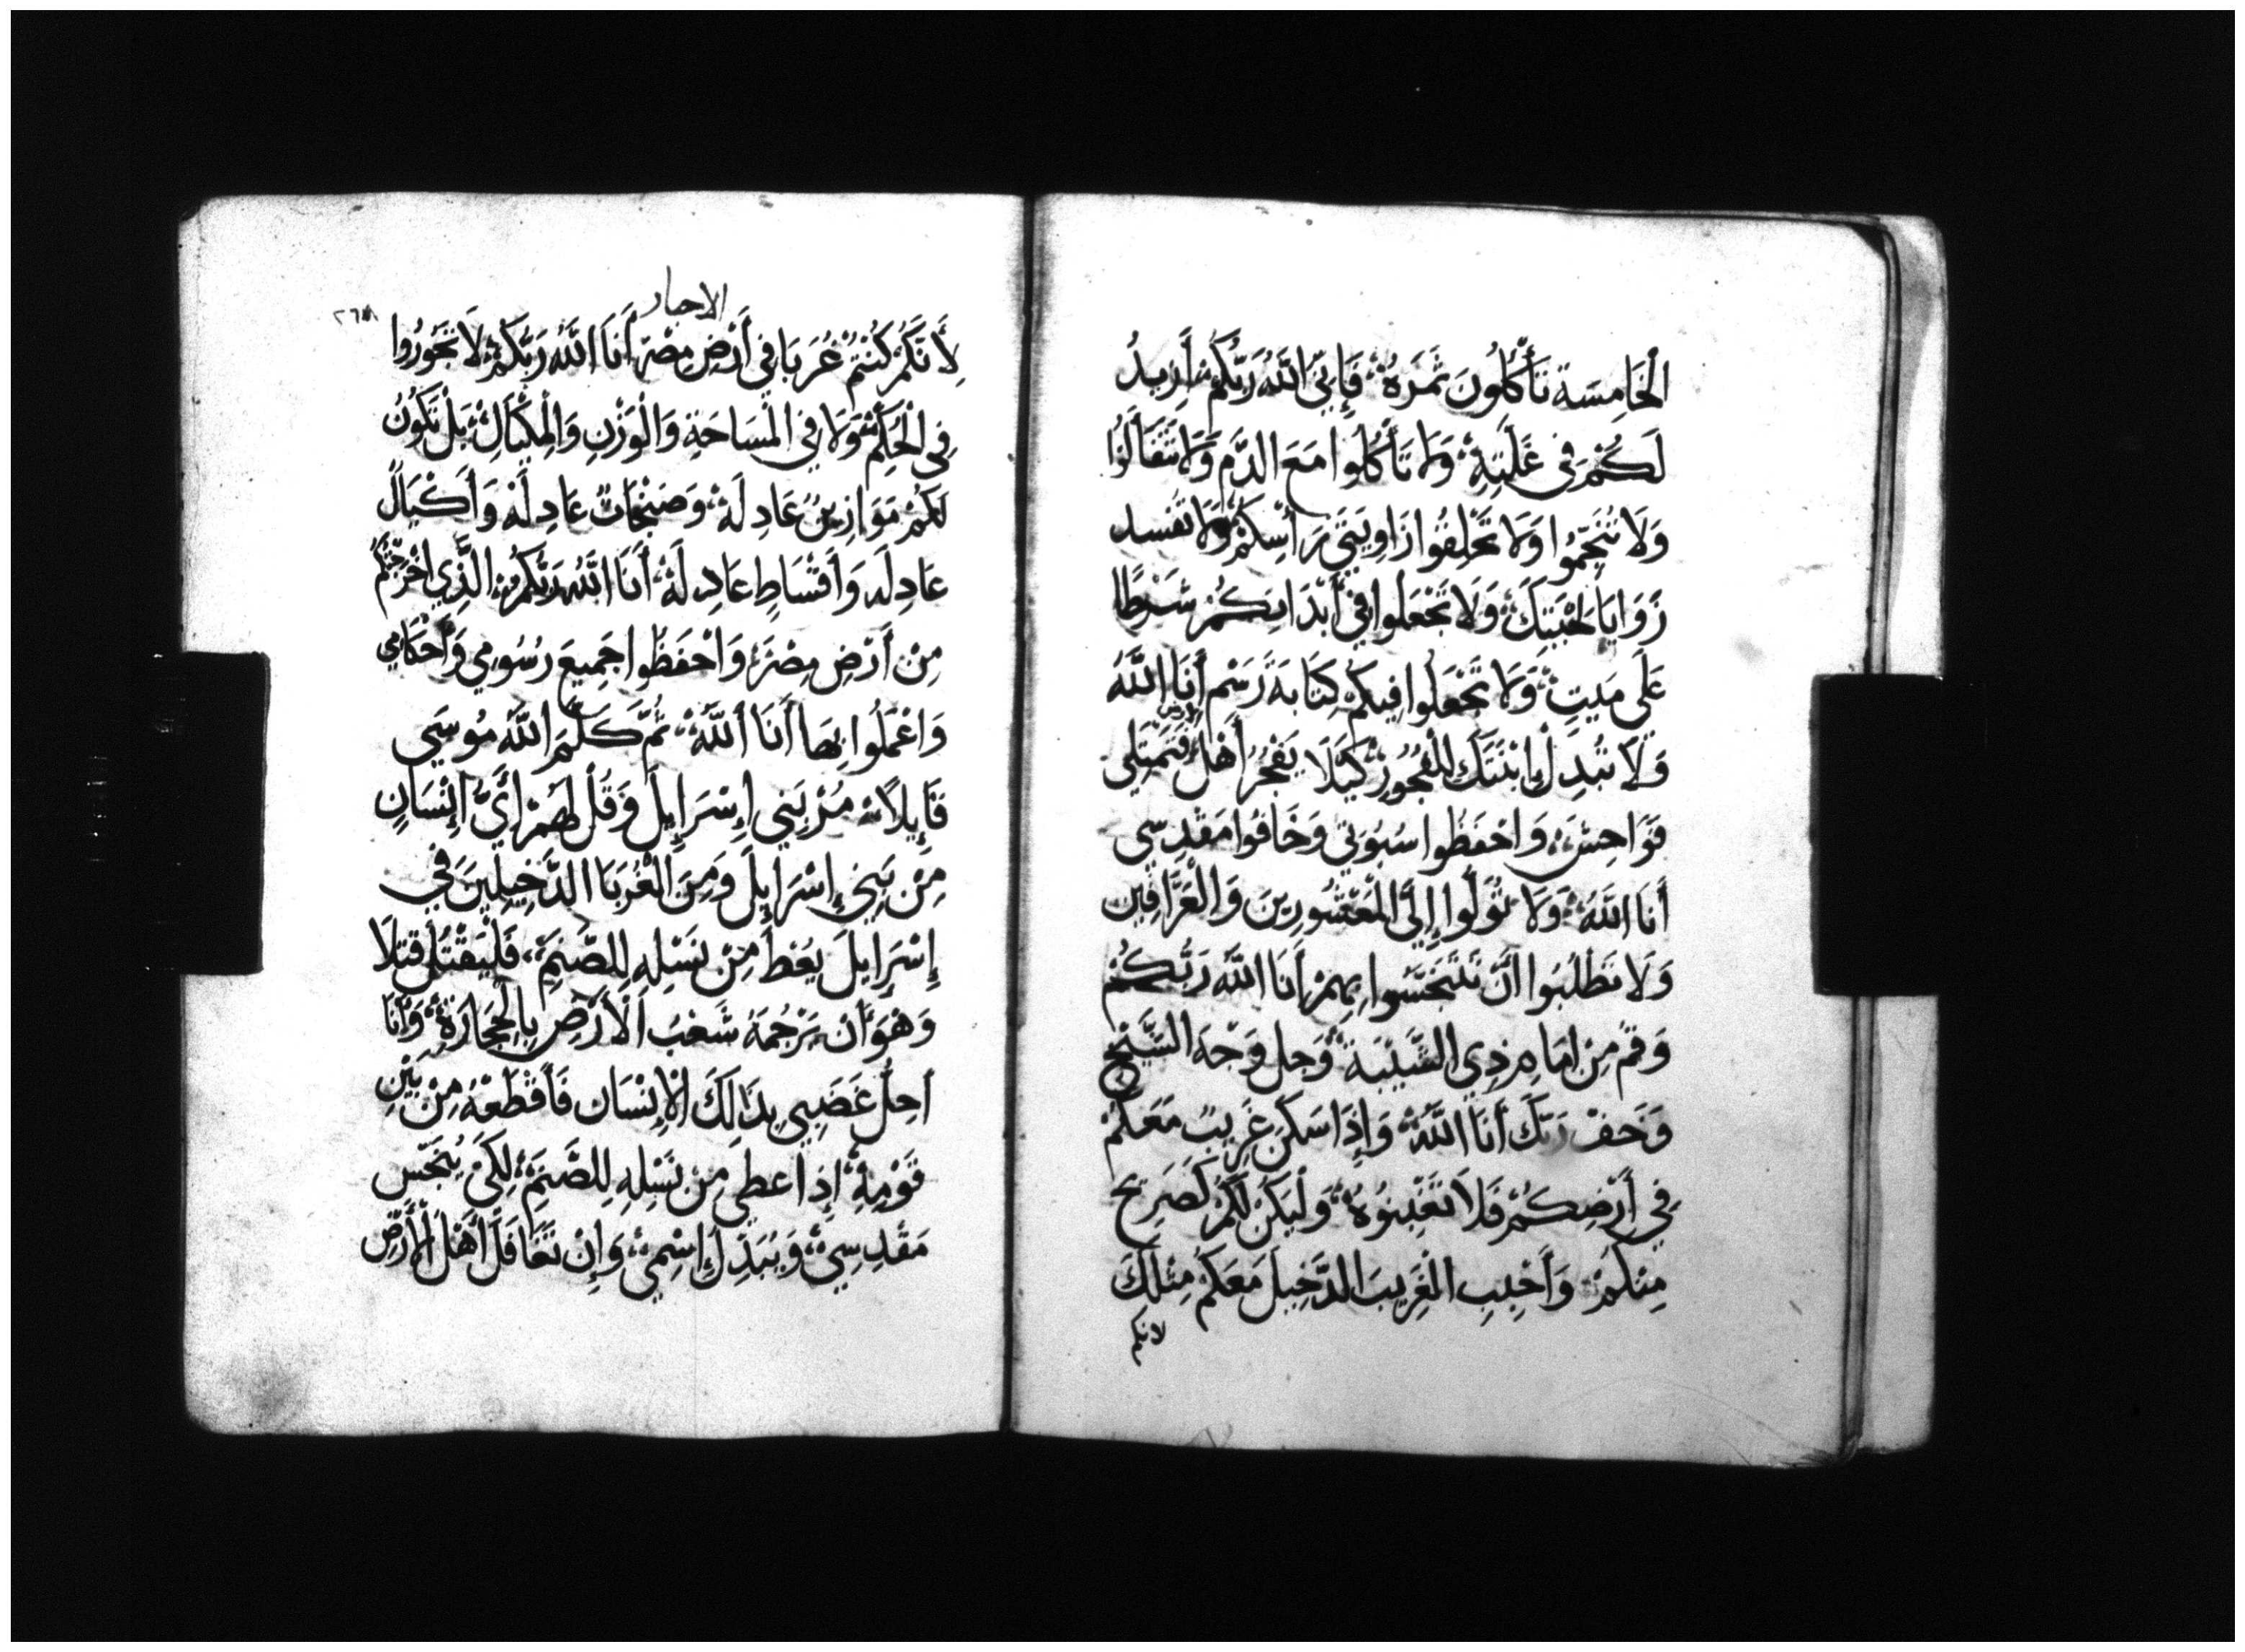 الْخَامِسَة تَأْكُلُونَ ثَمَرَهُ فَإِنِّي اللَّهُ رَبُّكُمْ أَزِيدُ
لَكُمْ فِي غَلَّتِهِ وَلَا تَأْكُلُوا مَعَ الدَّمِ وَلَا تَتَفَالَوُا
وَلَا تُنَجِّمُوا وَلَا تَحْلِقُوا زَاوِيَتَيْ رَأْسِكُمْ وَلَا تفسد
زَوَايَا لِحْيَتِكَ وَلَا تَجْعَلُوا فِي أَبْدَانِكُمْ شَرْطًا
عَلَى مَيِّتٍ وَلَا تَجْعَلُوا فِيكُمْ كِتَابَةَ رَسْمٍ أَنَا اللَّهُ
وَلَا تُبَدِّلْ ابْنَتَكَ لِلْفُجُورِ كَيْلَا يَفْجُرُ أَهْلُ الارض فَتَمْتَلِي
فَوَاحِشَ وَاحْفَظُوا سُبُوتِي وَخَافُوا مَقْدِسِي
أَنَا اللَّهُ وَلَا تُوَلُّوا إِلَى الْمُعَشُورِينَ وَالْعَرَّافِينَ
وَلَا تَطْلُبُوا أَنْ تَتَنَجَّسُوا بِهِمْ أَنَا اللَّهُ رَبُّكُمْ
وَقُمْ مِنْ امَامِ ذِي الشَّيْبَةِ وَجِلّ وَجْهَ الشَّيْخِ
وَخَفْ رَبَّكَ أَنَا اللَّهُ وَإِذَا سَكَنَ غَرِيبٌ مَعَكُمْ
فِي أَرْضِكُمْ فَلَا تَغْبِنُوهُ وَلْيَكُنْ لَكُمْ كَصَرِيحٍ
مِنْكُمْ وَأَحْبِبِ الْغَرِيبَ الدَّخِيلَ مَعَكُمْ مِثْلَكَ
لانكم
الاحبار
٢٦٨
لِأَنَّكُمْ كُنْتُمْ غُرَبَا فِي أَرْضِ مِصْرَ أَنَا اللَّهُ رَبُّكُمْ لَا تَجُورُوا
فِي الْحُكْمِ وَلَا فِي الْمَسَاحَةِ وَالْوَزْنِ وَالْمِكْيَالِ بَلْ تَكُونُ
لَكُمْ مَوَازِينُ عَادِلَة وَصَنْجَاتٌ عَادِلَة وَأَكْيَالٌ
عَادِلَه وَأَقْسَاطٍ عَادِلَة أَنَا اللَّهُ رَبُّكُمْ الَّذِي اخْرَجْتُكُمْ
مِنْ أَرْضِ مِصْرَ وَاحْفَظُوا جَمِيعَ رُسُومِي وَأَحْكَامِي
وَاعْمَلُوا بِهَا أَنَا اللَّهُ ثُمَّ كَلَّمَ اللَّهُ مُوسَى
قَايِلًا مُرْ بَنِي إِسْرَايِلَ وَقُلْ لَهُمْ أَيُّ إِنْسَانٍ
مِنْ بَنِي إِسْرَايِلَ وَمِنَ الْغُرَبَا الدَّخِيلِينَ فِي
إِسْرَايِلَ يُعْطَ مِنْ نَسْلِهِ لِلصَّنَمِ فَلْيُقْتَلْ قَتْلًا
وَهُوَ أَنْ يَرْجُمَهُ شَعْبُ الْأَرْضِ بِالْحِجَارَةِ وَأَنَا
أُحِلُّ غَضَبِي بِذَالِكَ الْإِنْسَان فَأَقْطَعْهُ مِنْ بَيْنِ
قَوْمِهِ إِذ اعطى مِنْ نَسْلِهِ لِلصَّنَمِ لِكَيْ يُنَجِّسَ
مَقْدِسِي وَيُبَذِّلَ إِسْمِي وَإِنْ تَغَافَلَ أَهْلُ الْأَرْضِ